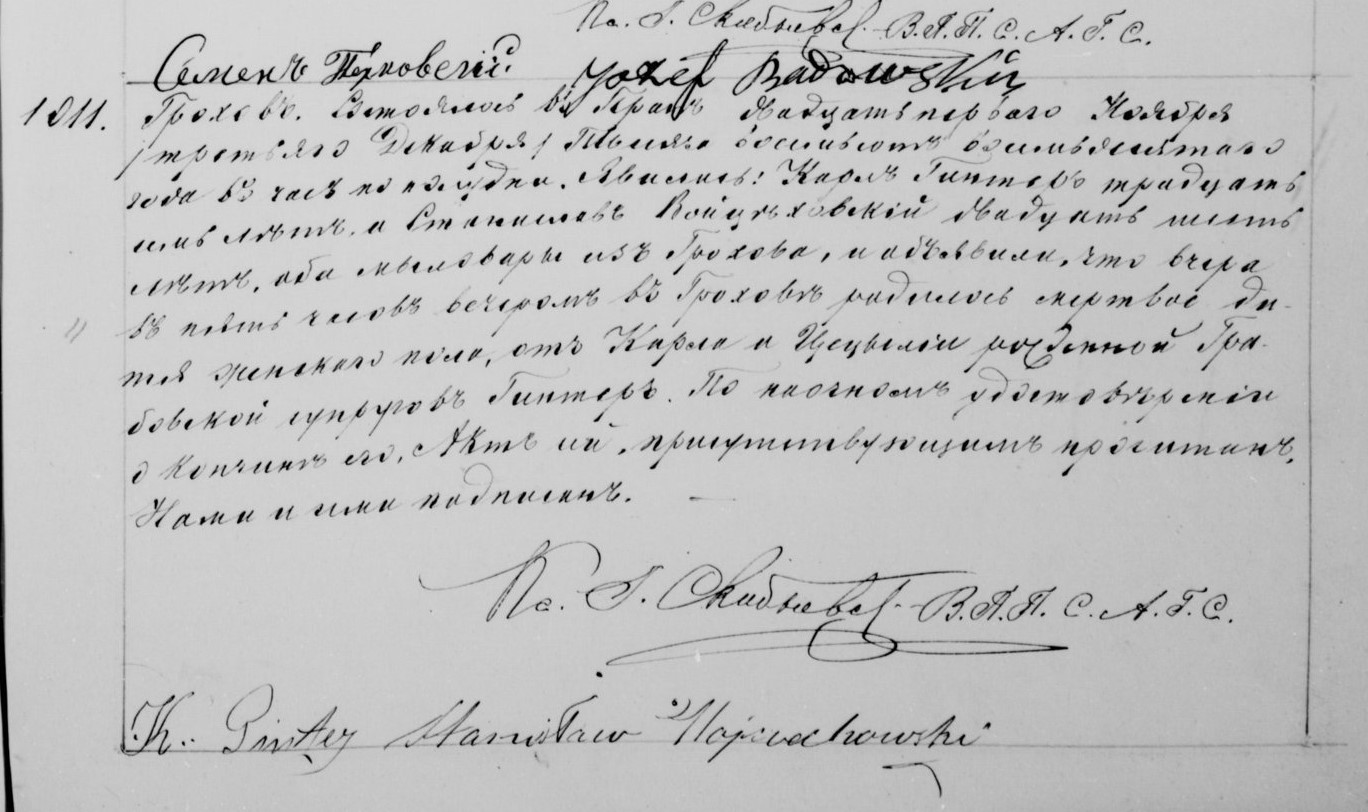 Кс. Г. Скибневск. В.П.П. С. А. Г. С.
Семенъ Józef Badowski
1811. Гроховъ. Состоялось въ Прагѣ двадцать перваго Ноября
/третьяго Декабря/ Тысяча восемьсотъ восемьдесятаго
года въ часъ по полудни. Явились: Карлъ Гинтеръ тридцать
лѣтъ, и Станиславъ Войцѣховскій двадцать шесть
лѣтъ, оба мыловары изъ Грохова, и объявили, что вчера
въ пять часовъ вечеромъ въ Гроховѣ родилось мертвое ди-
тя женскаго пола, отъ Карла и Цецыліи рожденной Гра-
бовской супруговъ Гинтеръ. По наочномъ удостовѣреніи
о кончинѣ его, Актъ сей, присутствующимъ прочитанъ,
Нами и ими подписанъ. —
Кс. Г. Скибневск. В.П.П. С. А. Г. С.
K. Ginter Stanisław Wojciechowski